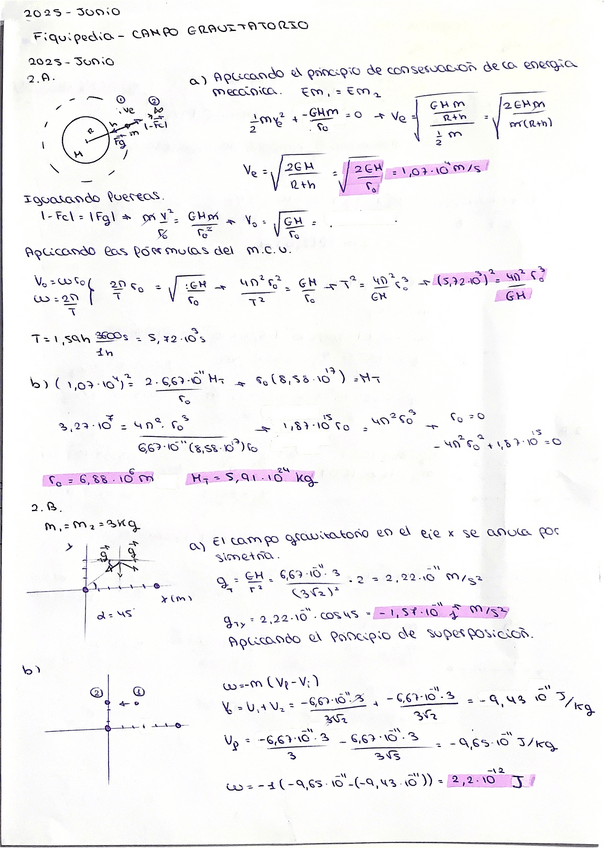 2025-Junio
Fiquipedia - CAMPO GRAVITATORIO
2025-Junio
2.A.
a) Aplicando el principio de conservación de la energía
mecánica. Em₁ = Em₂
① ② ve R h m |-Fc| Fg M
1/2 mve² + -GHm/r₀ = 0 → Ve = √((GHm/(R+h))/(1/2 m)) = √(2GHm/(m(R+h)))
Ve = √(2GH/(R+h)) = √(2GH/r₀) = 1,07·10⁴ m/s
Igualando fuerzas.
|-Fc| = |Fg| → m v²/r₀ = GHm/r₀² → V₀ = √(GH/r₀) =
Aplicando las fórmulas del M.C.U.
V₀ = ωr₀
ω = 2π/T } 2π/T r₀ = √(GH/r₀) → 4π² r₀²/T² = GH/r₀ → T² = 4π²/GH r₀³ → (5,72·10³)² = 4π² r₀³/GH
T = 1,59h 3600s/1h = 5,72·10³s
b) (1,07·10⁴)² = 2·6,67·10⁻¹¹ M_T/r₀ → r₀(8,58·10¹⁷) = M_T
3,27·10⁷ = 4π²·r₀³/(6,67·10⁻¹¹(8,58·10¹⁷)r₀) → 1,87·10¹⁵ r₀ = 4π²r₀³ → r₀ = 0
-4π²r₀² + 1,87·10¹⁵ = 0
r₀ = 6,88·10⁶ m M_T = 5,91·10²⁴ kg
2.B.
m₁ = m₂ = 3kg
a) El campo gravitatorio en el eje x se anula por
simetría.
y g g x(m)
α = 45
g_T = GH/r² = 6,67·10⁻¹¹·3/(3√2)² · 2 = 2,22·10⁻¹¹ m/s²
g_Ty = 2,22·10⁻¹¹·cos45 = -1,57·10⁻¹¹ j m/s²
Aplicando el Principio de superposición.
b)
② ①
ω = -m(Vf - Vi)
Vi = V₁ + V₂ = -6,67·10⁻¹¹·3/3√2 + -6,67·10⁻¹¹·3/3√2 = -9,43·10⁻¹¹ J/kg
Vf = -6,67·10⁻¹¹·3/3 - 6,67·10⁻¹¹·3/3√5 = -9,65·10⁻¹¹ J/kg
ω = -1(-9,65·10⁻¹¹ - (-9,43·10⁻¹¹)) = 2,2·10⁻¹² J